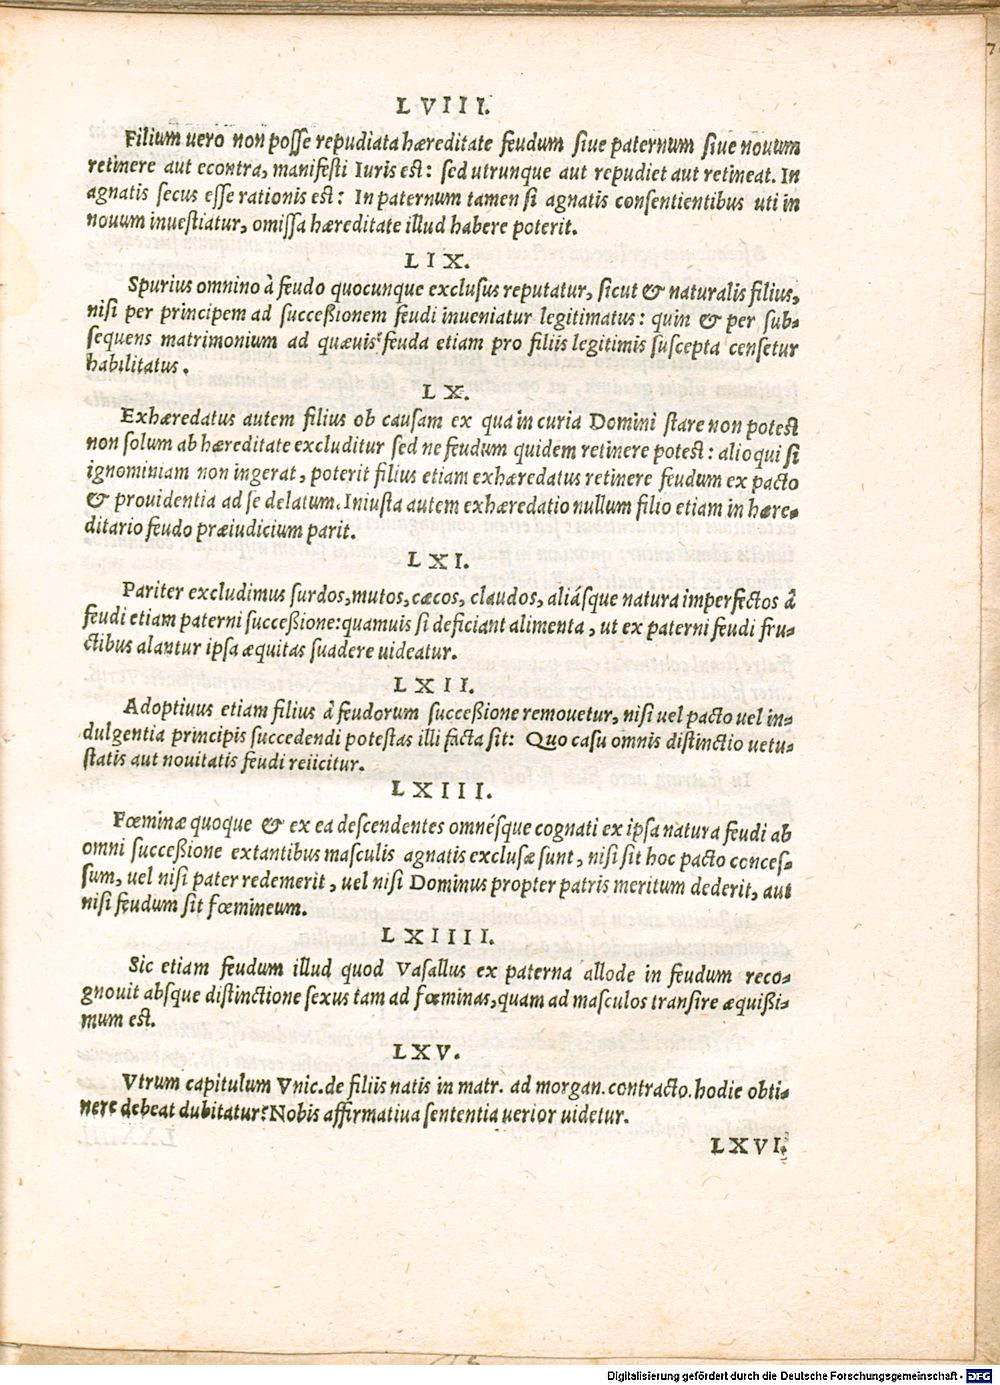 LVIII.
Filium uero non posse repudiata hæreditate feudum siue paternum siue nouum
retinere aut econtra, manifesti Iuris est: sed utrunque aut repudiet aut retineat. In
agnatis secus esse rationis est: In paternum tamen si agnatis consentientibus uti in
nouum inuestiatur, omissa hæreditate illud habere poterit.
LIX.
Spurius omnino à feudo quocunque exclusus reputatur, sicut & naturalis filius,
nisi per principem ad succeßionem feudi inueniatur legitimatus: quin & per sub-
sequens matrimonium ad quæuis feuda etiam pro filiis legitimis suscepta censetur
habilitatus.
LX.
Exhæredatus autem filius ob causam ex qua in curia Domini stare non potest
non solum ab hæreditate excluditur sed ne feudum quidem retinere potest: alioqui si
ignominiam non ingerat, poterit filius etiam exhæredatus retinere feudum ex pacto
& prouidentia ad se delatum. Iniusta autem exhæredatio nullum filio etiam in hære-
ditario feudo præiudicium parit.
LXI.
Pariter excludimus surdos, mutos, cæcos, claudos, aliásque natura imperfectos à
feudi etiam paterni succeßione: quamuis si deficiant alimenta, ut ex paterni feudi fru-
ctibus alantur ipsa æquitas suadere uideatur.
LXII.
Adoptiuus etiam filius à feudorum succeßione remouetur, nisi uel pacto uel in-
dulgentia principis succedendi potestas illi facta sit: Quo casu omnis distinctio uetu-
statis aut nouitatis feudi reiicitur.
LXIII.
Fœminæ quoque & ex ea descendentes omnésque cognati ex ipsa natura feudi ab
omni succeßione extantibus masculis agnatis exclusæ sunt, nisi sit hoc pacto conces-
sum, uel nisi pater redemerit, uel nisi Dominus propter patris meritum dederit, aut
nisi feudum sit fœmineum.
LXIIII.
Sic etiam feudum illud quod Vasallus ex paterna allode in feudum reco-
gnouit absque distinctione sexus tam ad fœminas, quam ad masculos transire æquißi-
mum est.
LXV.
Vtrum capitulum Vnic. de filiis natis in matr. ad morgan. contracto. hodie obti-
nere debeat dubitatur? Nobis affirmatiua sententia uerior uidetur.
LXVI.
Digitalisierung gefördert durch die Deutsche Forschungsgemeinschaft - DFG